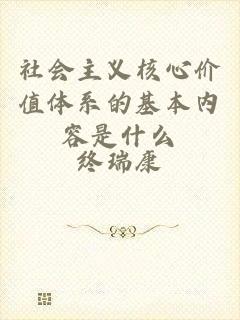 社会主义核心价
值体系的基本内
容是什么
终瑞康